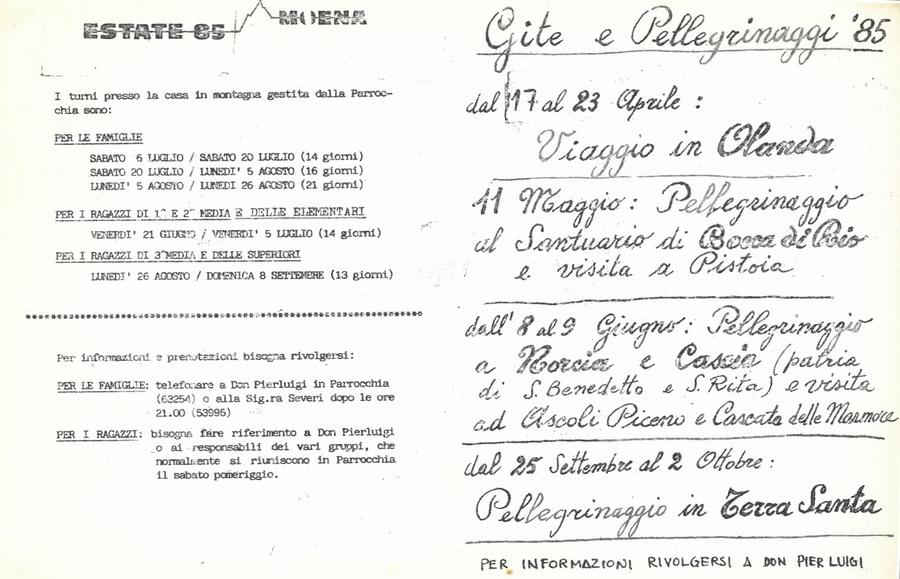 ESTATE 85 MOENA
I turni presso la casa in montagna gestita dalla Parroc-
chia sono:
PER LE FAMIGLIE
SABATO 6 LUGLIO / SABATO 20 LUGLIO (14 giorni)
SABATO 20 LUGLIO / LUNEDI' 5 AGOSTO (16 giorni)
LUNEDI' 5 AGOSTO / LUNEDI 26 AGOSTO (21 giorni)
PER I RAGAZZI DI 1^ E 2^ MEDIA E DELLE ELEMENTARI
VENERDI' 21 GIUGNO / VENERDI' 5 LUGLIO (14 giorni)
PER I RAGAZZI DI 3^MEDIA E DELLE SUPERIORI
LUNEDI' 26 AGOSTO / DOMENICA 8 SETTEMBRE (13 giorni)
Per informazioni e prenotazioni bisogna rivolgersi:
PER LE FAMIGLIE: telefonare a Don Pierluigi in Parrocchia
(63254) o alla Sig.ra Severi dopo le ore
21.00 (53996)
PER I RAGAZZI: bisogna fare riferimento a Don Pierluigi
o ai responsabili dei vari gruppi, che
normalmente si riuniscono in Parrocchia
il sabato pomeriggio.
Gite e Pellegrinaggi '85
dal 17 al 23 Aprile :
Viaggio in Olanda
11 Maggio: Pellegrinaggio
al Santuario di Bocca di Rio
e visita a Pistoia
dall' 8 al 9 Giugno: Pellegrinaggio
a Norcia e Cascia (patria
di S. Benedetto e S. Rita) e visita
ad Ascoli Piceno e Cascata delle Marmore
dal 25 Settembre al 2 Ottobre :
Pellegrinaggio in Terra Santa
PER INFORMAZIONI RIVOLGERSI A DON PIER LUIGI